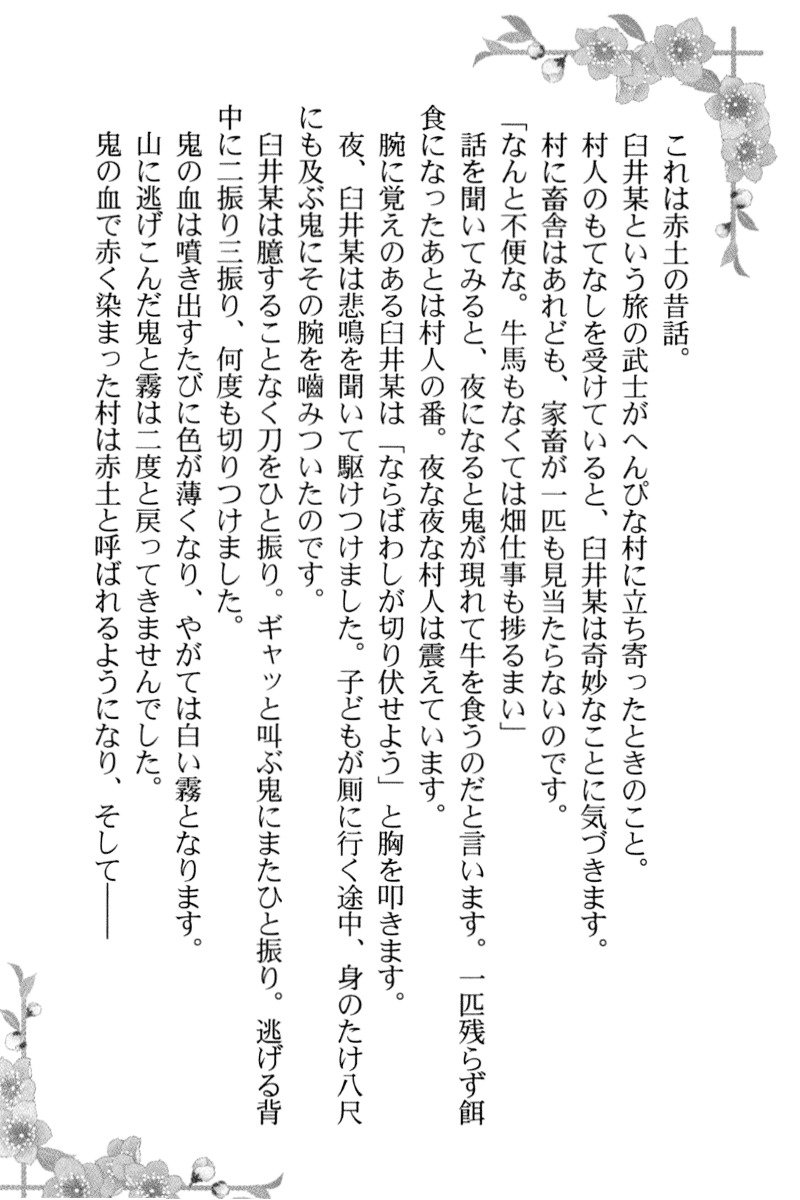 これは赤土の昔話。
臼井某という旅の武士がへんぴな村に立ち寄ったときのこと。
村人のもてなしを受けていると、臼井某は奇妙なことに気づきます。
村に畜舎はあれども、家畜が一匹も見当たらないのです。
「なんと不便な。牛馬もなくては畑仕事も捗るまい」
話を聞いてみると、夜になると鬼が現れて牛を食うのだと言います。一匹残らず餌
食になったあとは村人の番。夜な夜な村人は震えています。
腕に覚えのある臼井某は「ならばわしが切り伏せよう」と胸を叩きます。
夜、臼井某は悲鳴を聞いて駆けつけました。子どもが厠に行く途中、身のたけ八尺
にも及ぶ鬼にその腕を嚙みついたのです。
臼井某は臆することなく刀をひと振り。ギャッと叫ぶ鬼にまたひと振り。逃げる背
中に二振り三振り、何度も切りつけました。
鬼の血は噴き出すたびに色が薄くなり、やがては白い霧となります。
山に逃げこんだ鬼と霧は二度と戻ってきませんでした。
鬼の血で赤く染まった村は赤土と呼ばれるようになり、そして――